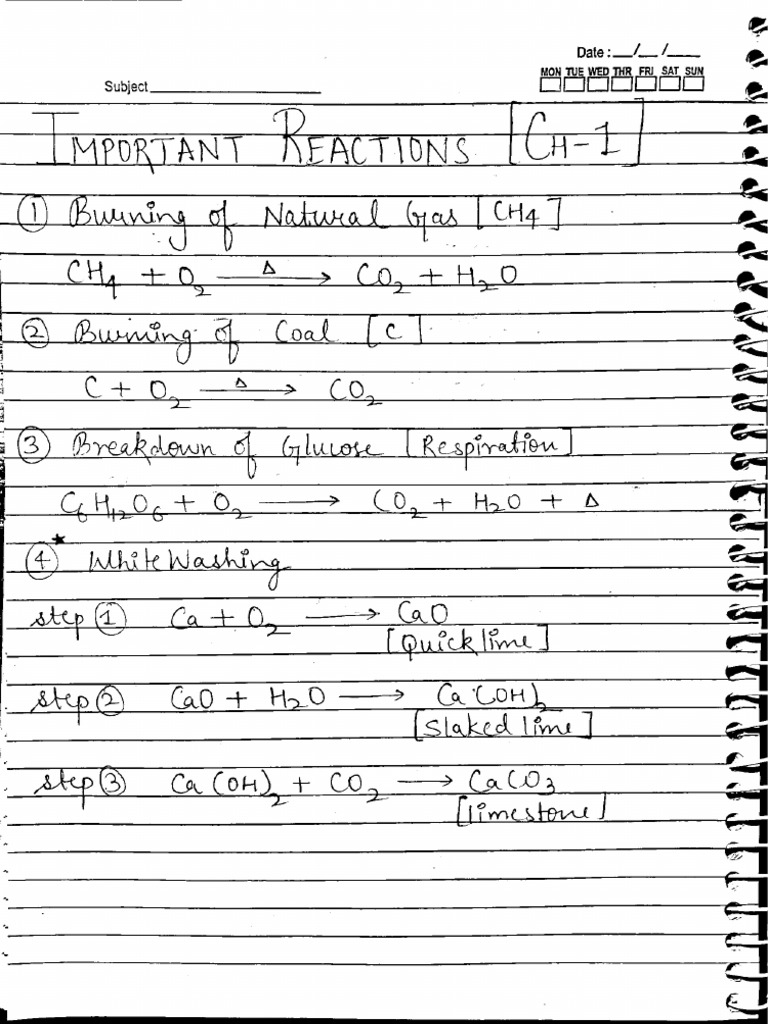 Date : __/__/___
MON TUE WED THR FRI SAT SUN
Subject
IMPORTANT REACTIONS [CH-1]
① Burning of Natural Gas [CH4]
CH₄ + O₂ —Δ→ CO₂ + H₂O
② Burning of Coal [C]
C + O₂ —Δ→ CO₂
③ Breakdown of Glucose [Respiration]
C₆H₁₂O₆ + O₂ ⟶ CO₂ + H₂O + Δ
④* White Washing
step ① Ca + O₂ ⟶ CaO
[Quick lime]
step ② CaO + H₂O ⟶ Ca(OH)₂
[Slaked lime]
step ③ Ca(OH)₂ + CO₂ ⟶ CaCO₃
[limestone]